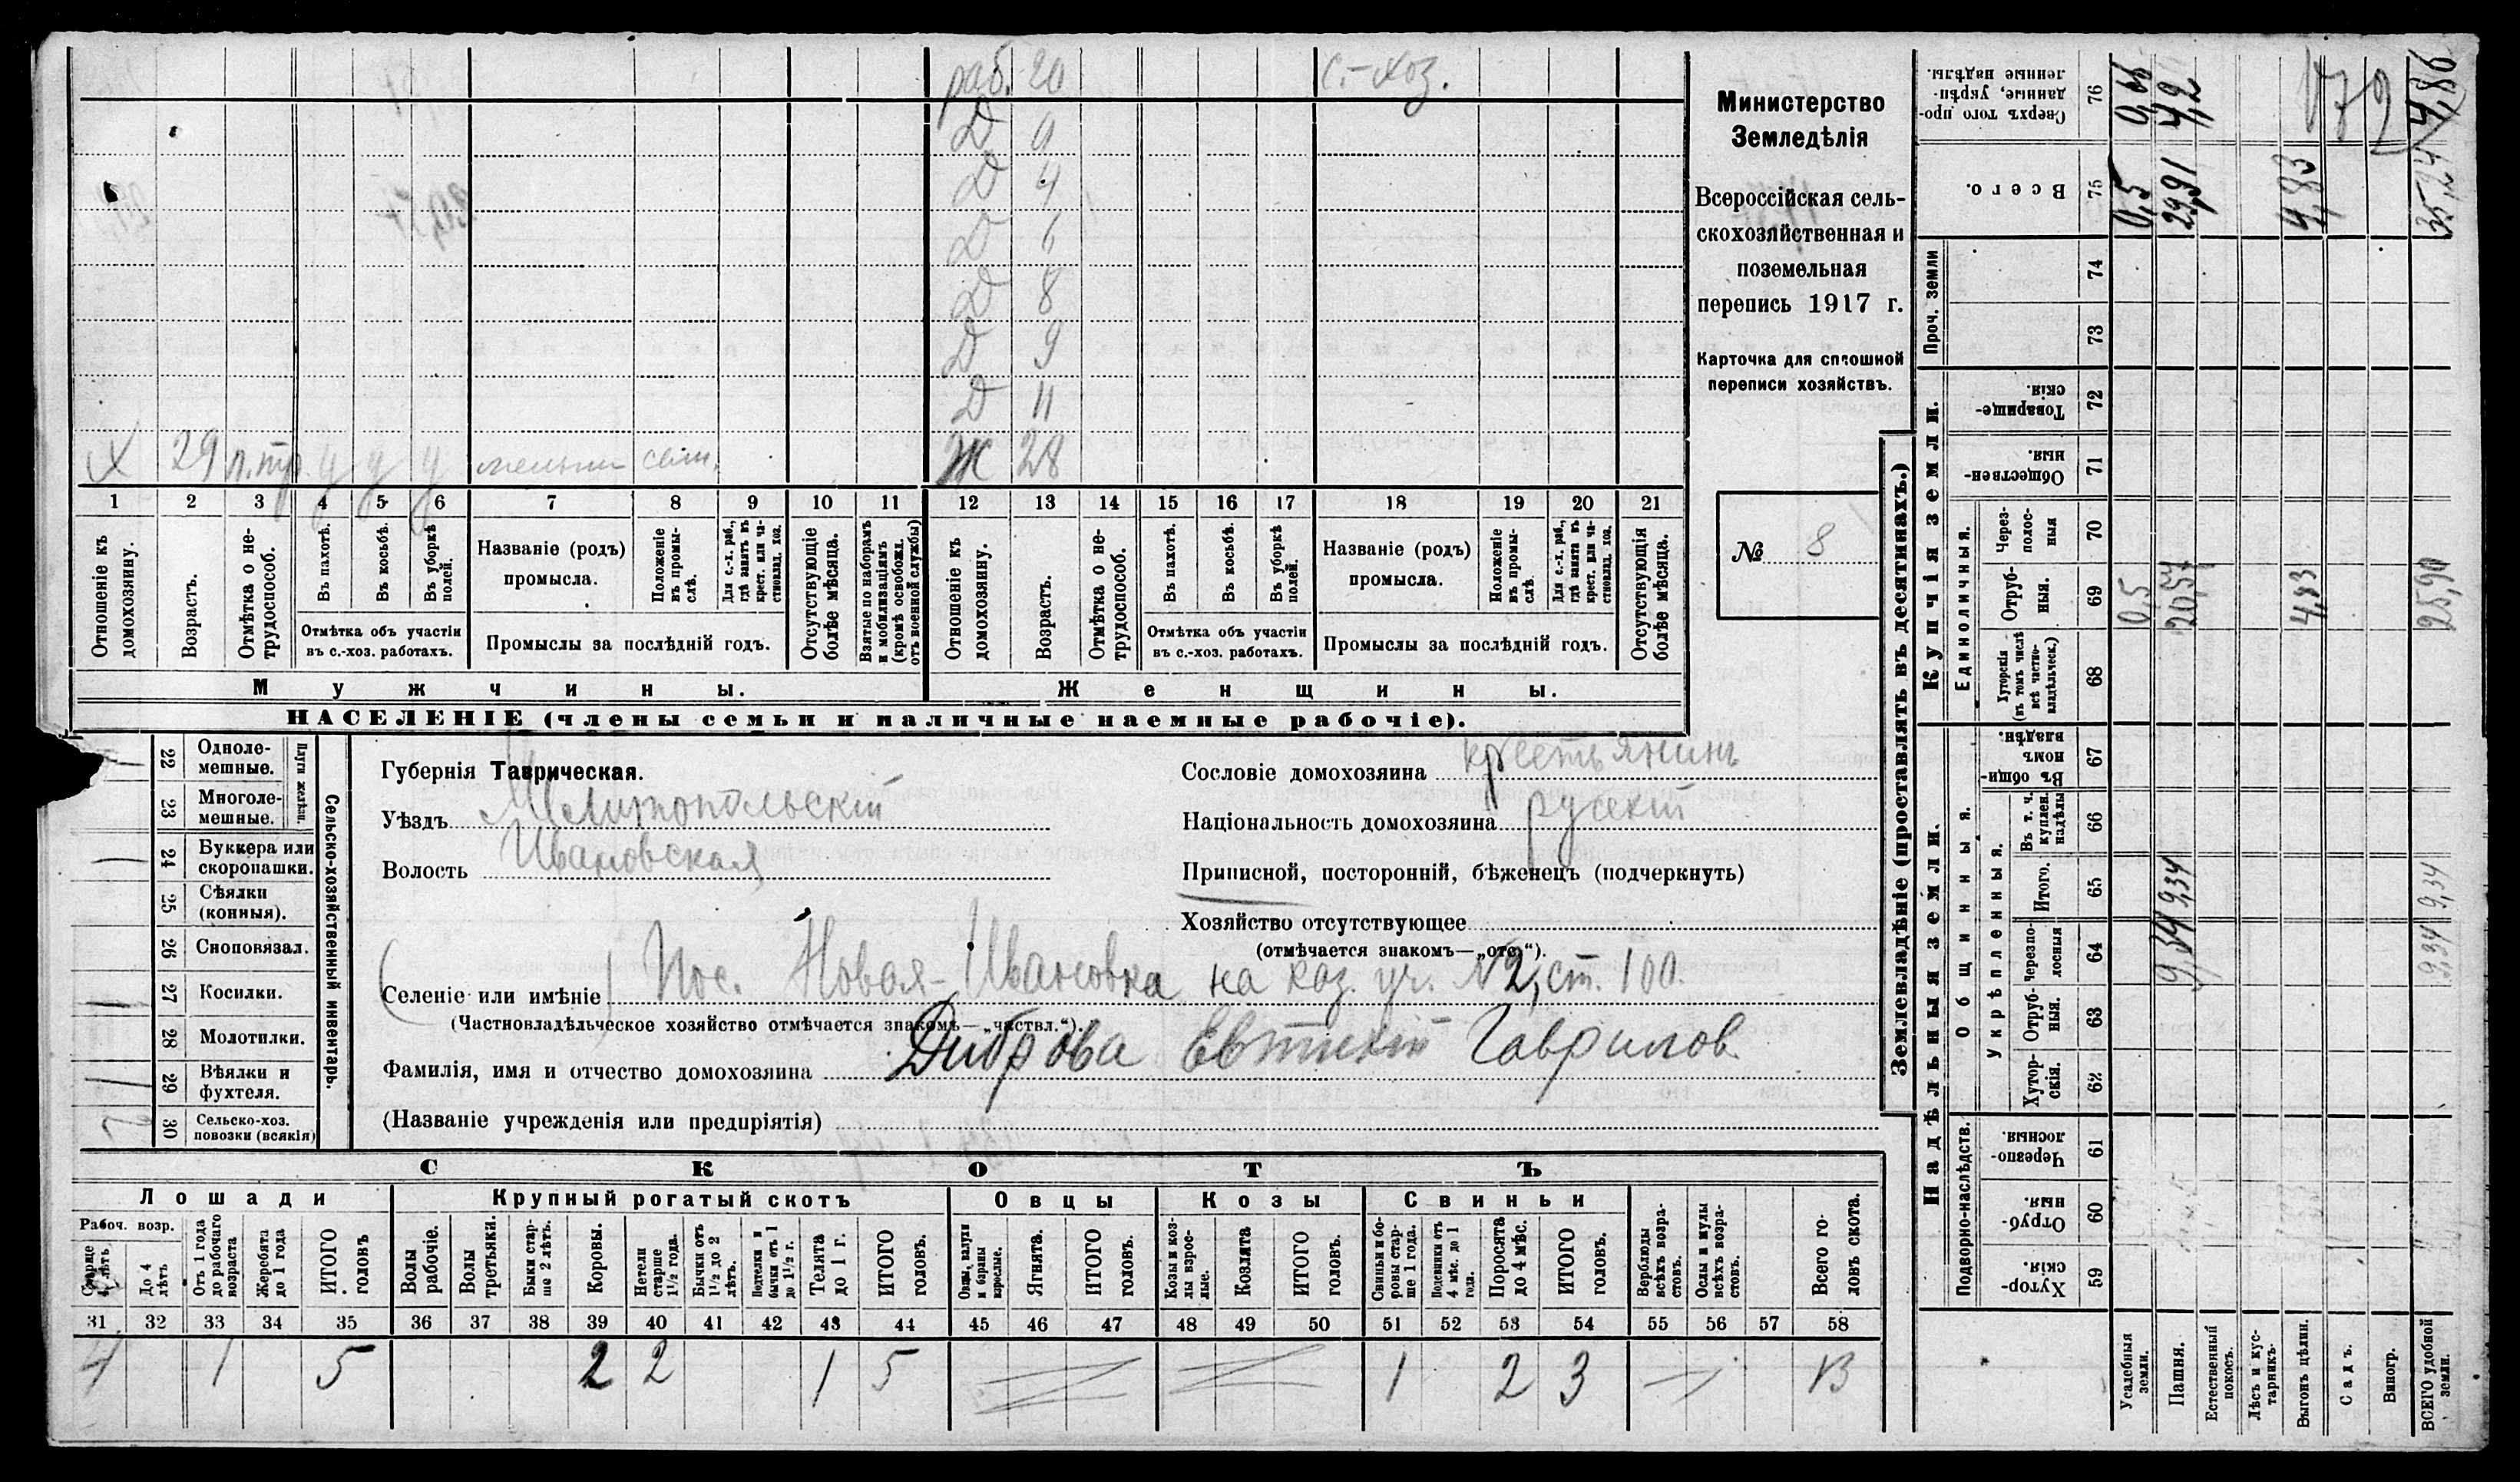 раб. 20 с.-хоз.
Д 9
Д 4
Д 6
Д 8
Д 9
Д 11
Х 29 п.тр. у у у Ж 28
1 2 3 4 5 6 7 8 9 10 11 12 13 14 15 16 17 18 19 20 21
Отношеніе къ домохозяину.
Возрастъ.
Отмѣтка о не-трудоспособ.
Въ пахотѣ.
Въ косьбѣ.
Въ уборкѣ полей.
Отмѣтка объ участіи
въ с.-хоз. работахъ.
Названіе (родъ)
промысла.
Положеніе въ промы-слѣ.
Для с.-х. раб., гдѣ занятъ въ крест. или ча-стновлад. хоз.
Промыслы за послѣдній годъ.
Отсутствующіе болѣе мѣсяца.
Взятые по наборамъ и мобилизаціямъ (кромѣ освобожд. отъ военной службы)
Отношеніе къ домохозяину.
Возрастъ.
Отмѣтка о не-трудоспособ.
Въ пахотѣ.
Въ косьбѣ.
Въ уборкѣ полей.
Отмѣтка объ участіи
въ с.-хоз. работахъ.
Названіе (родъ)
промысла.
Положеніе въ промы-слѣ.
Для с.-х. раб., гдѣ занята въ крест. или ча-стновлад. хоз.
Промыслы за послѣдній годъ.
Отсутствующія болѣе мѣсяца.
Мужчины. Женщины.
НАСЕЛЕНІЕ (члены семьи и наличные наемные рабочіе).
Министерство
Земледѣлія
Всероссійская сель-
скохозяйственная и
поземельная
перепись 1917 г.
Карточка для сплошной
переписи хозяйствъ.
№ 8
Сельско-хозяйственный инвентарь.
Плуги желѣзн.
22 Одноле-мешные.
23 Многоле-мешные.
24 Буккера или скоропашки.
25 Сѣялки (конныя).
26 Сноповязал.
27 Косилки.
28 Молотилки.
29 Вѣялки и фухтеля.
30 Сельско-хоз. повозки (всякія)
Губернія Таврическая.
Уѣздъ Мелитопольскій
Волость Ивановская
Сословіе домохозяина крестьянинъ
Національность домохозяина русскій
Приписной, посторонній, бѣженецъ (подчеркнуть)
Хозяйство отсутствующее
(отмѣчается знакомъ—„отс.“).
Селеніе или имѣніе Пос. Новая-Ивановка на каз. уч. №2, ст. 100.
(Частновладѣльческое хозяйство отмѣчается знакомъ—„частвл.“).
Фамилія, имя и отчество домохозяина Диброва Евтихій Гаврилов
(Названіе учрежденія или предпріятія)
СКОТЪ
Лошади Крупный рогатый скотъ Овцы Козы Свиньи
Рабоч. возр.
Старше 4 лѣтъ
До 4 лѣтъ
Отъ 1 года до рабочаго возраста
Жеребята до 1 года
ИТОГО головъ
Волы рабочіе.
Волы третьяки.
Быки стар-ше 2 лѣтъ.
Коровы.
Нетели старше 1½ года.
Бычки отъ 1½ до 2 лѣтъ.
Подтелки и бычки отъ 1 до 1½ г.
Телята до 1 г.
ИТОГО головъ.
Овцы, валухи и бараны взрослые.
Ягнята.
ИТОГО головъ.
Козы и коз-лы взрос-лые.
Козлята
ИТОГО головъ.
Свиньи и бо-ровы стар-ше 1 года.
Подсвинки отъ 4 мѣс. до 1 года.
Поросята до 4 мѣс.
ИТОГО головъ.
Верблюды всѣхъ возра-стовъ.
Ослы и мулы всѣхъ возра-стовъ.
Всего го-ловъ скота.
31 32 33 34 35 36 37 38 39 40 41 42 43 44 45 46 47 48 49 50 51 52 53 54 55 56 57 58
4 1 5 2 2 1 5 1 2 3 13
Землевладѣніе (проставлять въ десятинахъ.)
Надѣльныя земли.
Подворно-наслѣдств.
59 Хутор-скія.
60 Отруб-ныя.
61 Черезпо-лосныя.
Общинныя.
Укрѣпленныя.
62 Хутор-скія.
63 Отруб-ныя.
64 Черезпо-лосныя
65 Итого.
66 Въ т. ч. куплен. надѣлы
67 Въ общи-номъ владѣн.
Купчія земли.
Единоличныя.
68 Хуторскія (въ томъ числѣ всѣ частно-владѣльческ.)
69 Отруб-ныя.
70 Через-полос-ныя
71 Обществен-ныя.
72 Товарище-скія.
Проч. земли
73
74
75 Всего.
76 Сверхъ того про-данные, укрѣп-ленные надѣлы.
Усадебныя земли. 0,5 0,5 0,66
Пашня. 9,34 9,34 20,57 29,91 4,2
Естественный покосъ.
Лѣсъ и кус-тарникъ.
Выгонъ цѣлин. 4,83 4,83
Садъ.
Виногр.
ВСЕГО удобной земли. 9,34 9,34 25,90 35,24 4,86